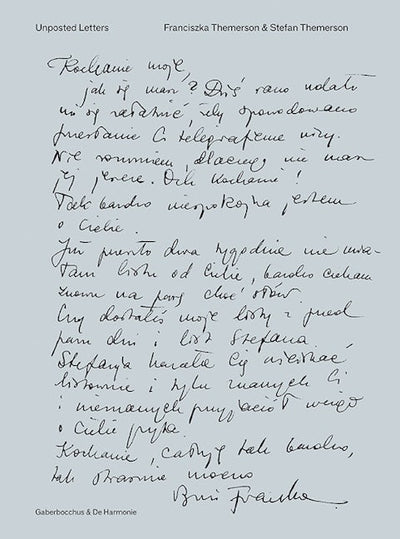 Unposted Letters Franciszka Themerson & Stefan Themerson
Kochanie moje,
jak się masz? Dziś rano udało
mi się załatwić, żeby spowodowano
przesłanie Ci telegraficzne wizy.
Nie rozumiem, dlaczego nie masz
jej jeszcze. Och kochanie!
Tak bardzo niespokojna jestem
o Ciebie.
Już prawie dwa tygodnie nie mia-
łam listu od Ciebie, bardzo czekam
znowu na parę choć słów.
Czy dostałeś moje listy z przed
paru dni i list Stefana.
Stefania kazała Cię uściskać,
listownie i tylu znanych Ci
i nieznanych przyjaciół wciąż
o Ciebie pyta.
Kochanie, całuję tak bardzo,
tak strasznie mocno
Franka.
Gaberbocchus & De Harmonie